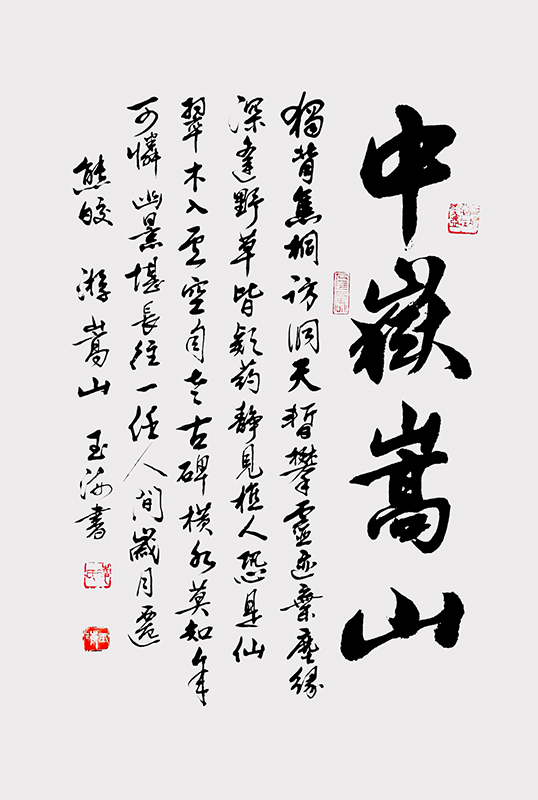 中嶽嵩山
獨背焦桐訪洞天暫攀靈迹棄塵緣
深逢野草皆疑药靜見樵人恐是仙
翠木入云空自老古碑横水莫知年
可憐幽景堪長往一任人间歲月遷
熊皎 游嵩山 玉海書